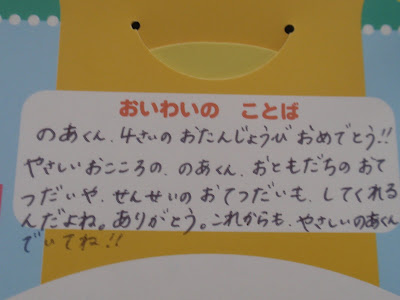 おいわいの ことば
のあくん、4さいの おたんじょうび おめでとう!!
やさしいおこころの、のあくん、おともだちの おて
つだいや、せんせいの おてつだいも、してくれる
んだよね。ありがとう。これからも、やさしいのあくん
でいてね!!